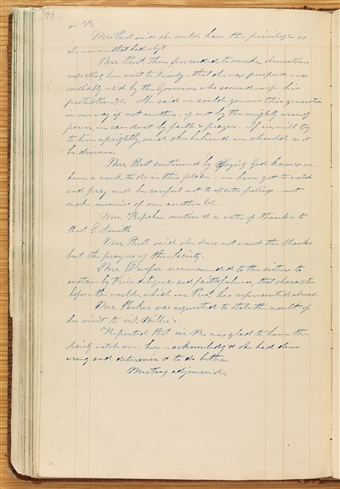 Mrs Prest said she could have the privilege as
she was
Mrs Prest then proceeded to make observations
respecting her visit to Quincy - that she was prospered - was
cordially rec'd by the Governor who assured us of his
protection &c. He said we could
in one way if not another - if not by the mighty arm of
power, we can do it by faith & prayer. If we will try
to live uprightly, and she believed we should not
be driven.
Mrs Prest continued by saying God knows we
have a work to do in this place - we have got to watch
and pray and be careful not to excite feelings - not
make enemies of one another &c.
Mrs. motioned a vote of thanks to
Mrs. E. Smith
Mrs Prest said she does not want the thanks
but the prayers of the Society.
Mrs. Durfee recommended to the sisters to
sustain by their diligence and faithfulness, that character
before the world, which our Prest. has represented abroad
Mrs. was requested to state the result of
her visit to
Reported that sis. M. was glad to have the
Society watch over her - acknowledg'd she had done
wrong and determined to do better
Meeting adjourned.